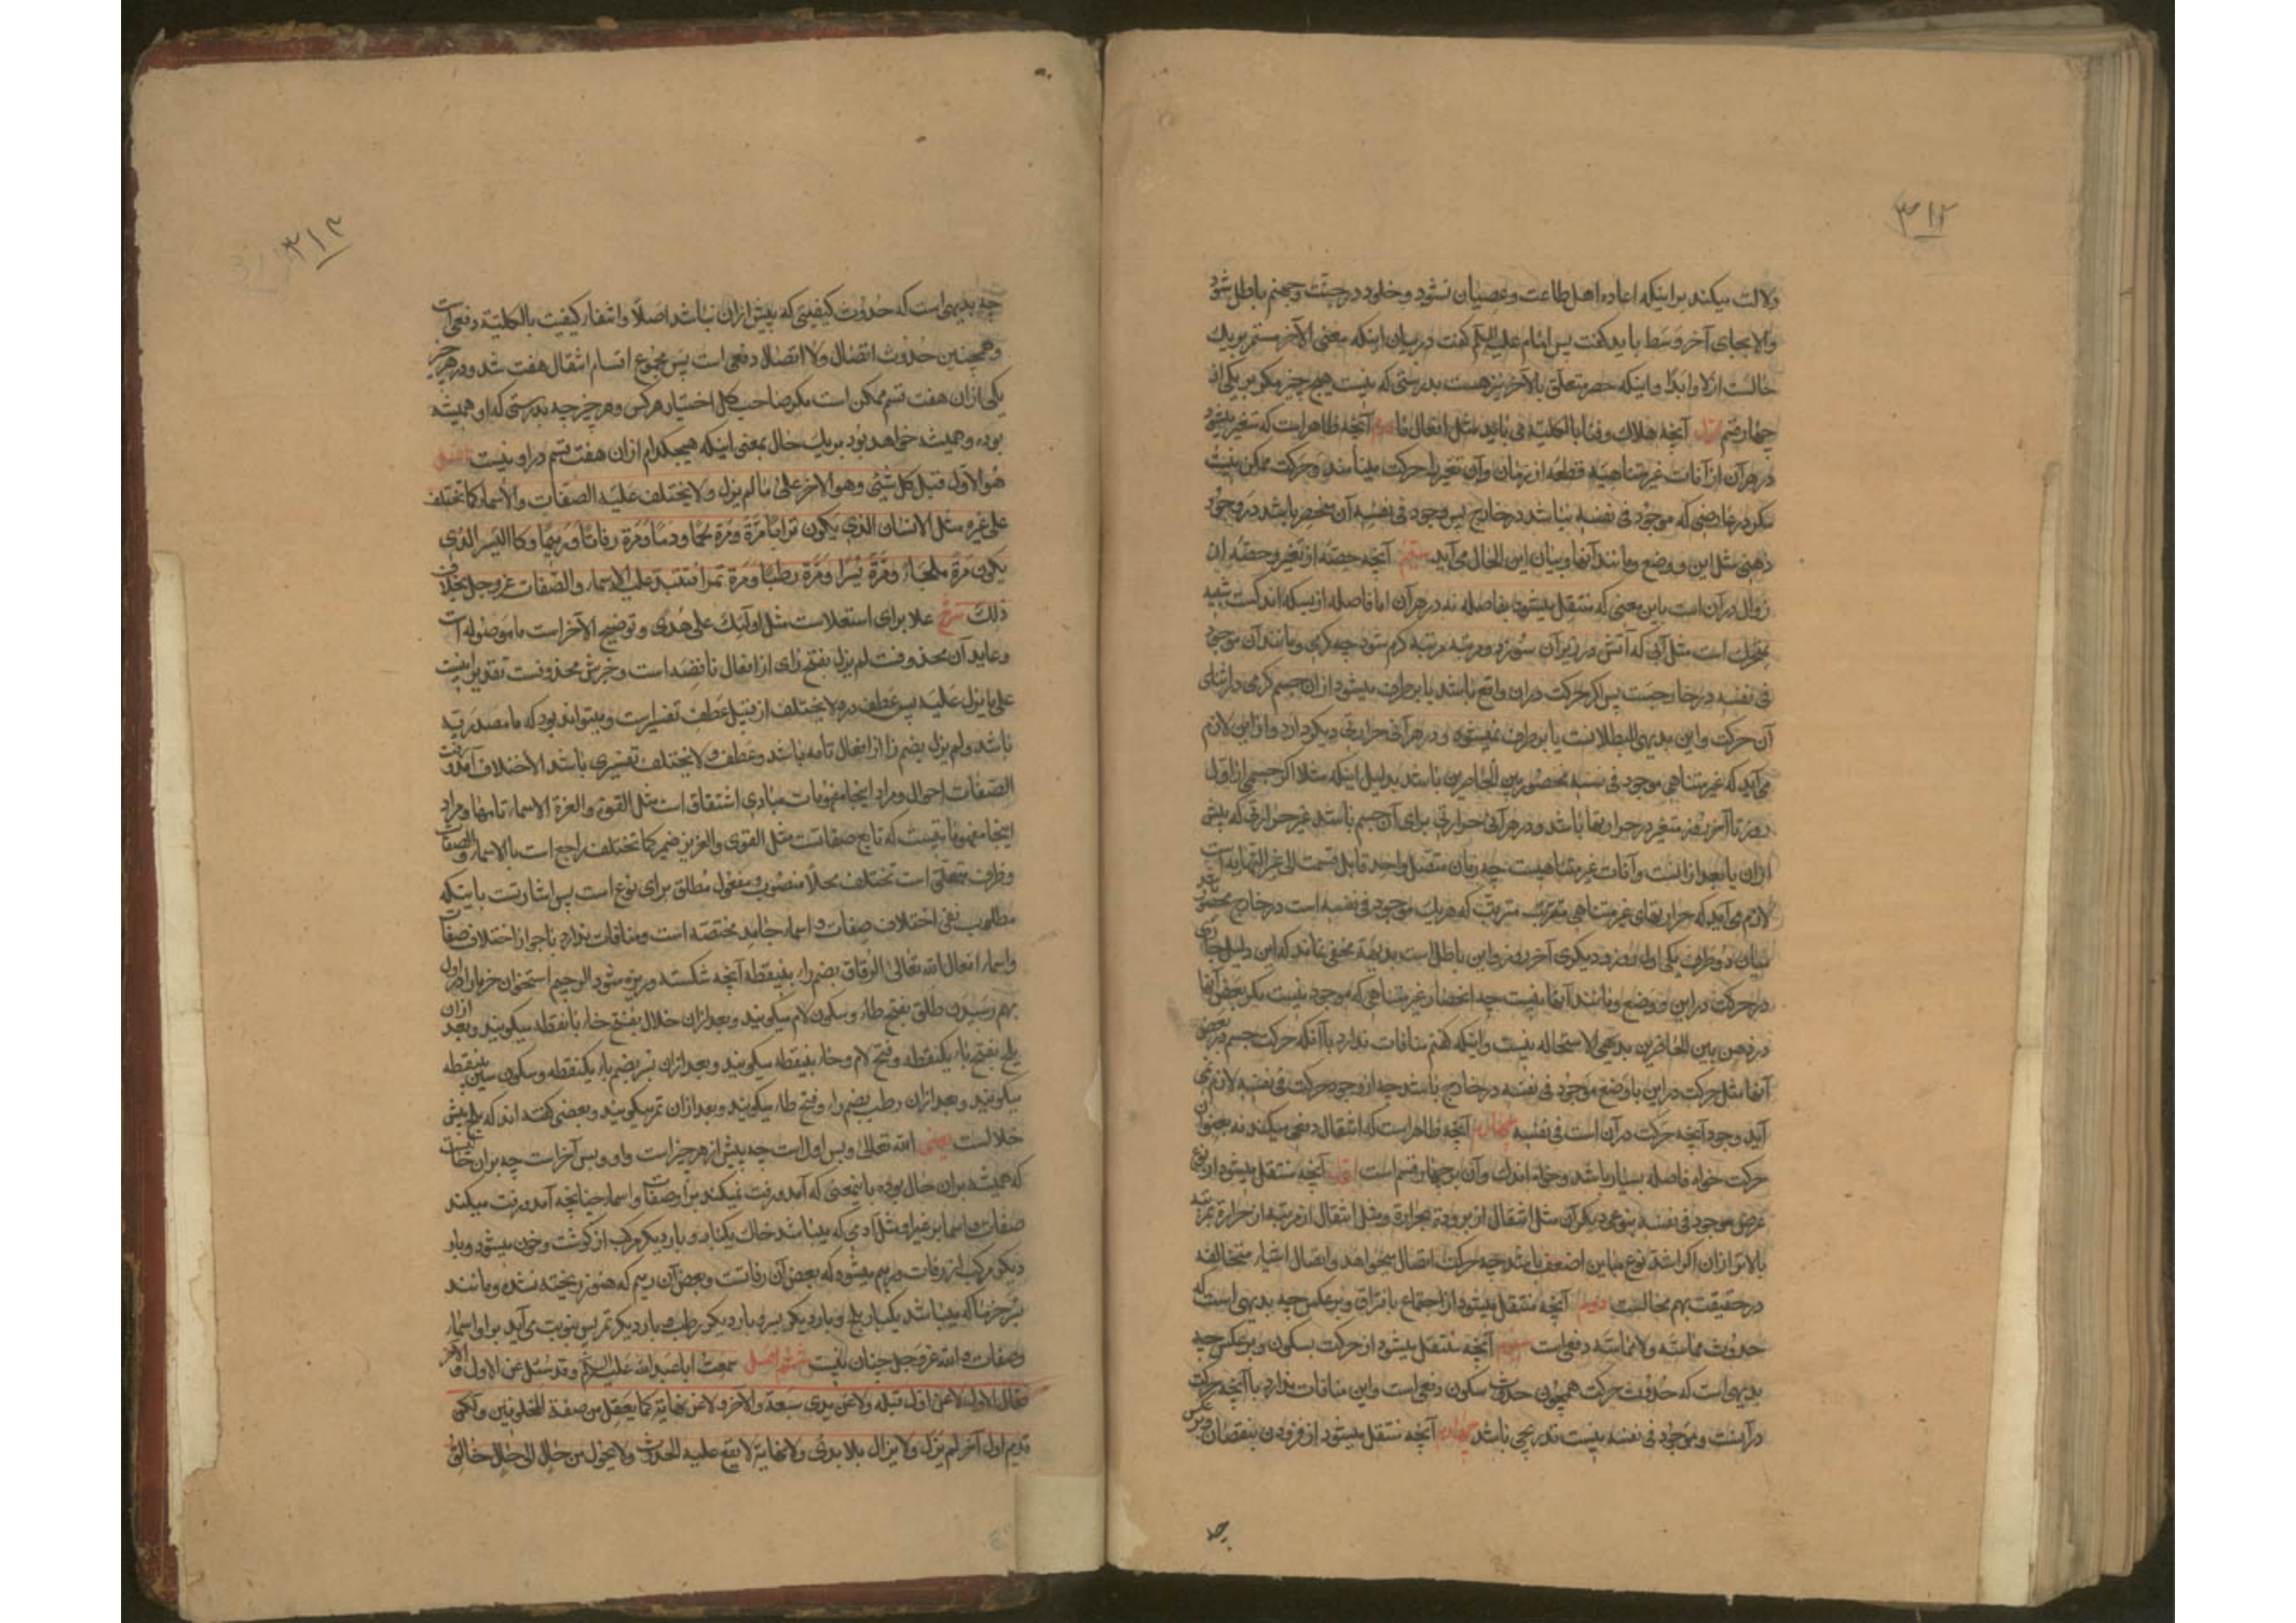 ۳۱۲
دلالت میکند بر اینکه اعاده اهل طاعت و عصیان نشود و خلود در جنت و جهنم باطل شود
والا بجای آخر وسط باید گفت پس امام علیه السلم گفت در بیان اینکه معنی الآخر مستمر بر یک
حالست ازلا و ابدا و اینکه حصر متعلق بالآخر نیز هست بدرستی که نیست هیچ چیز مکر بر یکی از
چهار قسم اول آنچه هلاک و فنا بالکلیة می یابد مثل افعال ما دوم آنچه ظاهر است که متغیر میشود
در هر آن از آنات غیر متناهیه قطعه از زمان و آن تغیر را حرکت مینامند و حرکت ممکن نیست
مکر در عارضی که موجود فی نفسه نباشد در خارج پس وجود فی نفسه آن منحصر باشد در وجود
ذهنی مثل این و وضع و مانند آنها و بیان این الحال می آید سیم آنچه حصه از تغیر و حصه از
زوال در آن است باین معنی که منتقل میشود بفاصله نه در هر آن اما فاصله از بسکه اندکست شبیه
بحرکت است مثل آبی که آتش در زیر آن سوزد و مرتبه مرتبه کرم شود چه کرمی و مانند آن موجود
فی نفسه در خارجست پس اکر حرکت در ان واقع باشد یا برطرف میشود از ان جسم کرمی در اثنای
آن حرکت و این بدیهی البطلانست یا برطرف نمیشود و در هر آنی حرارتی دیکر دارد و ازین لازم
می آید که غیر متناهی موجود فی نفسه محصور بین الحاصرین باشد بدلیل اینکه مثلا اکر جسمی از اول
روز تا آخر روز متغیر در حرارتها باشد و در هر آنی حرارتی برای آن جسم باشد غیر حرارتی که پیش
ازان یا بعد ازانست و آنات غیر متناهیست چه زمان متصل واحد قابل قسمت الی غیر النهایه است
لازم می آید که حرارتهای غیر متناهی متعاقب مترتب که هر یک موجود فی نفسه است در خارج محصور باشد
میان دو طرف یکی اول روز و دیکری آخر روز و این باطل است بدیهة مخفی نماند که این دلیل جاری
در حرکت در این و وضع و مانند آنها نیست چه انحصار غیر متناهی که موجود نیست مکر بعض آنها
در ذهن بین الحاصرین بدیهی الاستحاله نیست و اینکه کفتم منافات ندارد با آنکه حرکت جسم در بعض
آنها مثل حرکت در این یا وضع موجود فی نفسه در خارج باشد چه از وجود حرکت فی نفسه لازم نمی
آید وجود آنچه حرکت در آن است فی نفسه چهارم آنچه ظاهر است که انتقال دفعی میکند نه بعنوان
حرکت خواه فاصله بسیار باشد و خواه اندک و آن بر چهار قسم است اول آنچه منتقل میشود از نوع
عرض موجود فی نفسه بنوعی دیکر آن مثل انتقال از برودة بحرارة و مثل انتقال از مرتبه از حرارة بمرتبه
بالاتر ازان اکر اشد نوع مباین اضعف باشد چه حرکت اتصال میخواهد و اتصال اشیاء متخالفه
در حقیقت بهم محالست دوم آنچه منتقل میشود از اجتماع بافتراق و برعکس چه بدیهی است که
حدوث مماسّه و لامماسّه دفعی است سیوم آنچه منتقل میشود از حرکت بسکون و برعکس چه
بدیهی است که حدوث حرکت همچون حدوث سکون دفعی است و این منافات ندارد با آنچه حرکت
در آنست و موجود فی نفسه نیست تدریجی باشد چهارم آنچه منتقل میشود از فزودن بنقصان و برعکس
چه
۳۱۳
چه بدیهی است که حدوث کیفیتی که پیش ازان نباشد اصلا و انتفاء کیفیت بالکلیة دفعی است
و همچنین حدوث اتصال و لا اتصال دفعی است پس مجموع اقسام انتقال هفت شد و در هر چیز
یکی ازان هفت قسم ممکن است مکر صاحب کل اختیار هر کس و هر چیز چه بدرستی که او همیشه
بوده و همیشه خواهد بود بر یک حال بمعنی اینکه هیچکدام ازان هفت قسم در او نیست اصل
هو الاول قبل کل شیء وهو الآخر علی ما لم یزل ولا یختلف علیه الصفات والاسماء کما تختلف
علی غیره مثل الانسان الذی یکون ترابا مرة ومرة لحما ودما ومرة رفاتا ورمیما وکالبسر الذی
یکون مرة بلحا ومرة بسرا ومرة رطبا ومرة تمرا فتتبدل علیه الاسماء والصفات عز وجل بخلاف
ذلک شرح علا برای استعلاست مثل اولئک علی هدی و توضیح الآخر است ما موصوله است
و عاید آن محذوفست لم یزل بفتح زای از افعال ناقصه است و خبرش محذوفست تقدیر اینست
علی ما یزل علیه پس عطف ولا یختلف از قبیل عطف تفسیر است و میتواند بود که ما مصدریه
باشد و لم یزل بضم زا از افعال تامه باشد و عطف ولا یختلف تفسیری باشد الاختلاف آمد و رفت
الصفات احوال و مراد اینجا مفهومات مبادی اشتقاق است مثل القوة والعزة الاسماء نامها و مراد
اینجا مفهوماتیست که تابع صفاتست مثل القوی والعزیز ضمیر کما تختلف راجع است بالاسماء والصفات
و ظرف متعلق است تختلف محلا منصوب و مفعول مطلق برای نوع است پس اشارتست باینکه
مطلوب نفی اختلاف صفات و اسماء جامد مختصه است و منافات ندارد با جواز اختلاف صفات
و اسماء افعال الله تعالی الرفات بضم راء بینقطه آنچه شکسته و ریزه شود الرمیم استخوان خرما را در اول
بهم رسیدن طلق بفتح طاء و سکون لام میکویند و بعد ازان خلال بفتح خاء با نقطه میکویند و بعد ازان
بلح بفتح باء یکنقطه و فتح لام و حاء بینقطه میکویند و بعد ازان بسر بضم باء یکنقطه و سکون سین بینقطه
میکویند و بعد ازان رطب بضم راء و فتح طاء میکویند و بعد ازان تمر میکویند و بعضی کفته اند که بلح پیش
خلالست یعنی الله تعالی و بس اول است چه پیش از هر چیز است و او و بس آخر است چه بران حالست
که همیشه بران حال بوده باینمعنی که آمد و رفت نمیکند بر او صفات و اسماء چنانچه آمد و رفت میکند
صفات و اسما بر غیر او مثل آدمی که میباشد خاک یکبار و بار دیکر مرکب از کوشت و خون میشود و بار
دیکر مرکب از رفات و رمیم میشود که بعض آن رفاتست و بعض آن رمیم که هنوز ریخته نشده و مانند
بسر خرما که میباشد یکبار بلح و بار دیکر بسر و بار دیکر رطب و بار دیکر تمر پس بنوبت می آید بر او اسماء
و صفات و الله عز و جل چنان نیست ششم اصل سمعت ابا عبد الله علیه السلم وقد سئل عن الاول والآخر
فقال الاول لا عن اول قبله ولا عن بدیء سبقه والآخر لا عن نهایة کما یعقل من صفة المخلوقین ولکن
قدیم اول آخر لم یزل ولا یزال بلا بدیء ولا نهایة لا یقع علیه الحدوث ولا یحول من حال الی حال خالق